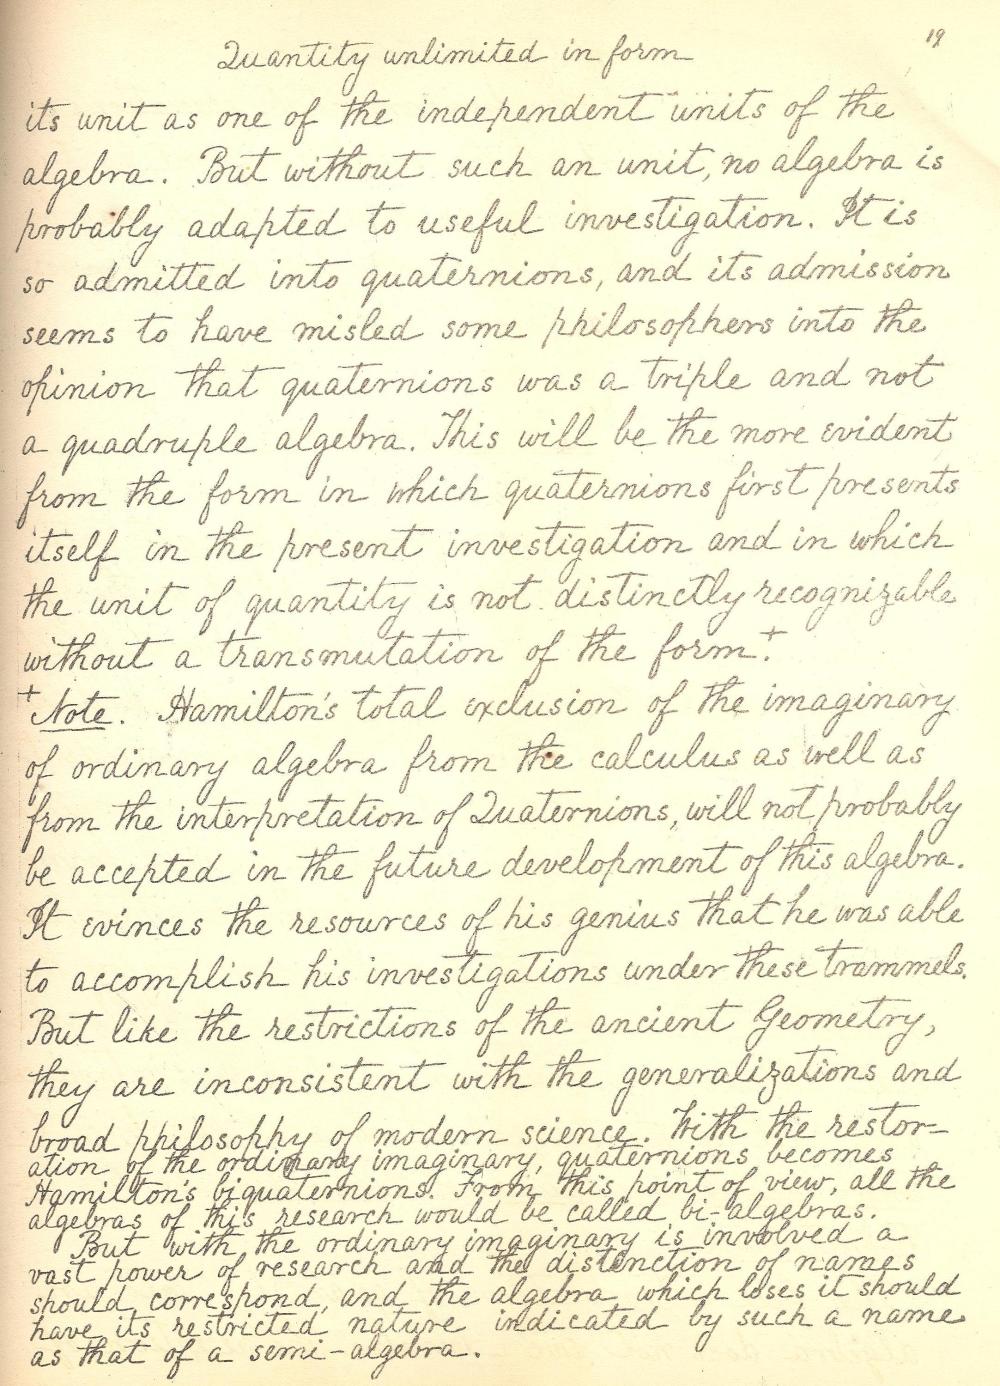 19
Quantity unlimited in form
its unit as one of the independent units of the
algebra. But without such an unit, no algebra is
probably adapted to useful investigation. It is
so admitted into quaternions, and its admission
seems to have misled some philosophers into the
opinion that quaternions was a triple and not
a quadruple algebra. This will be the more evident
from the form in which quaternions first presents
itself in the present investigation and in which
the unit of quantity is not distinctly recognizable
without a transmutation of the form.+
+Note. Hamilton's total exclusion of the imaginary
of ordinary algebra from the calculus as well as
from the interpretation of Quaternions, will not probably
be accepted in the future development of this algebra.
It evinces the resources of his genius that he was able
to accomplish his investigations under these trammels.
But like the restrictions of the ancient Geometry,
they are inconsistent with the generalizations and
broad philosophy of modern science. With the restor-
ation of the ordinary imaginary, quaternions becomes
Hamilton's biquaternions. From this point of view, all the
algebras of this research would be called bi-algebras.
But with the ordinary imaginary is involved a
vast power of research and the distinction of names
should correspond, and the algebra which loses it should
have its restricted nature indicated by such a name
as that of a semi-algebra.